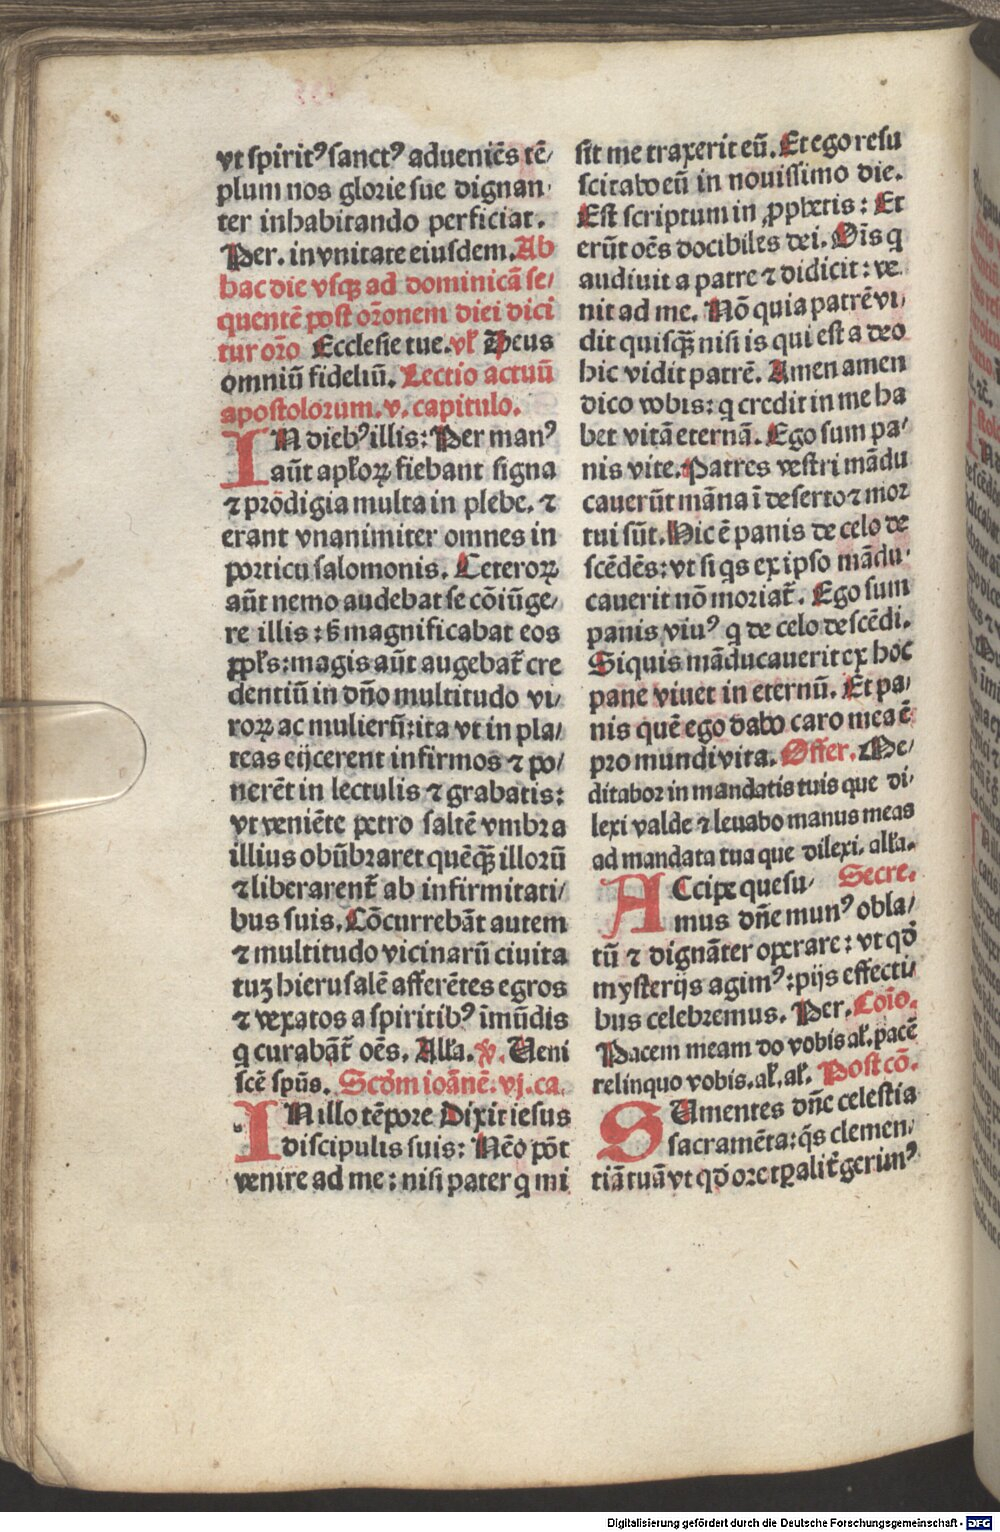 vt spiritꝰ sanctꝰ adueniēs tē/
plum nos glorie sue dignan/
ter inhabitando perficiat.
Per. in vnitate eiusdem. Ab
hac die vsqꝫ ad dominicā se/
quentē post orōnem diei dici
tur orō Ecclesie tue. vl̓ Deus
omniū fideliū. Lectio actuū
apostolorum. v. capitulo.
IN diebꝰ illis: Per manꝰ
aūt apl̓oꝝ fiebant signa
⁊ prodigia multa in plebe. ⁊
erant vnanimiter omnes in
porticu salomonis. Ceteroꝝ
aūt nemo audebat se cōiūge/
re illis: sꝫ magnificabat eos
ppl̓s: magis aūt augebat̄ cre
dentiū in dn̄o multitudo vi/
roꝝ ac mulierū: ita vt in pla/
teas eijcerent infirmos ⁊ po/
nerēt in lectulis ⁊ grabatis:
vt veniēte petro saltē vmbra
illius obūbraret quēqꝫ̄ illorū
⁊ liberarent̄ ab infirmitati/
bus suis. Cōcurrebāt autem
⁊ multitudo vicinarū ciuita
tuꝫ hierusalē afferētes egros
⁊ vexatos a spiritibꝰ īmūdis
q curabāt̄ oēs. Alla. ꝟ. Ueni
scē spūs. Scḋm ioānē. vj. ca.
IN illo tēpore Dixit iesus
discipulis suis: Nēo pōt
venire ad me: nisi pater q mi
sit me traxerit eū. Et ego resu
scitabo eū in nouissimo die.
Est scriptum in ꝓphetis: Et
erūt oēs docibiles dei. Oīs q
audiuit a patre ⁊ didicit: ve
nit ad me. Nō quia patrē vi/
dit quisqꝫ̄ nisi is qui est a deo
hic vidit patrē. Amen amen
dico vobis: q credit in me ha
bet vitā eternā. Ego sum pa/
nis vite. Patres vestri mādu
cauerūt māna ī deserto ⁊ mor
tui sūt. Hic ē panis de celo de
scēdēs: vt si qs ex ipso mādu/
cauerit nō moriat̄. Ego sum
panis viuꝰ q de celo descēdi.
Siquis māducauerit ex hoc
pane viuet in eternū. Et pa/
nis quē ego dabo caro mea ē
pro mundi vita. Offer. Me/
ditabor in mandatis tuis que di/
lexi valde ⁊ leuabo manus meas
ad mandata tua que dilexi. alla.
ACcipe quesu/ Secre.
mus dn̄e munꝰ obla/
tū ⁊ dignāter operare: vt qḋ
mysterijs agimꝰ: pijs effecti/
bus celebremus. Per. Coīo.
Pacem meam do vobis al̓. pacē
relinquo vobis. al̓. al̓. Post cō.
SUmentes dn̄e celestia
sacramēta: q̄s clemen/
tiā tuā vt qḋ ore tꝑalit̄ gerimꝰ
Digitalisierung gefördert durch die Deutsche Forschungsgemeinschaft - DFG